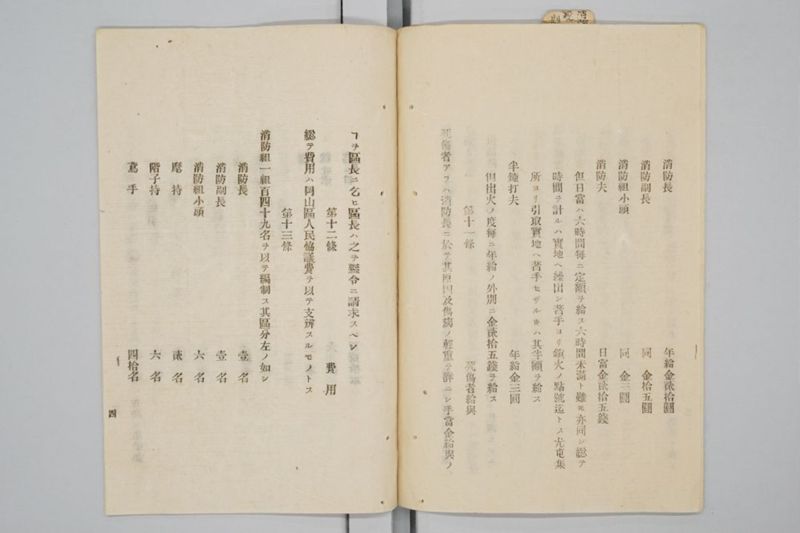 消防長　年給金貳拾圓
消防副長　同　金拾五圓
消防組小頭　同　金三圓
消防夫　日當金貳拾五錢
但日當ハ六時間毎ニ定額ヲ給ス六時間未滿ト雖モ亦同シ總テ
時間ヲ計ルハ實地ヘ繰出シ着手ヨリ鎭火ノ點號迄トス尤屯集
所ヨリ引取實地ヘ着手セザルキハ其半額ヲ給ス
半鐘打夫　年給金三圓
但出火ノ度毎ニ年給ノ外別ニ金貳拾五錢ヲ給ス
第十一條　死傷者給與
死傷者アラハ消防長ニ於テ其原因及傷病ノ輕重ヲ詳ニシ手當金給與ノ
ヿヲ區長ニ乞ヒ區長ハ之ヲ縣令ニ請求スヘシ
第十二條　費用
總テ費用ハ岡山區人民協議費ヲ以テ支辨スルモノトス
第十三條
消防組一組百四十九名ヲ以テ編制ス其區分左ノ如シ
消防長　壹名
消防副長　壹名
消防組小頭　六名
麾持　貳名
階子持　六名
鳶手　四拾名
四